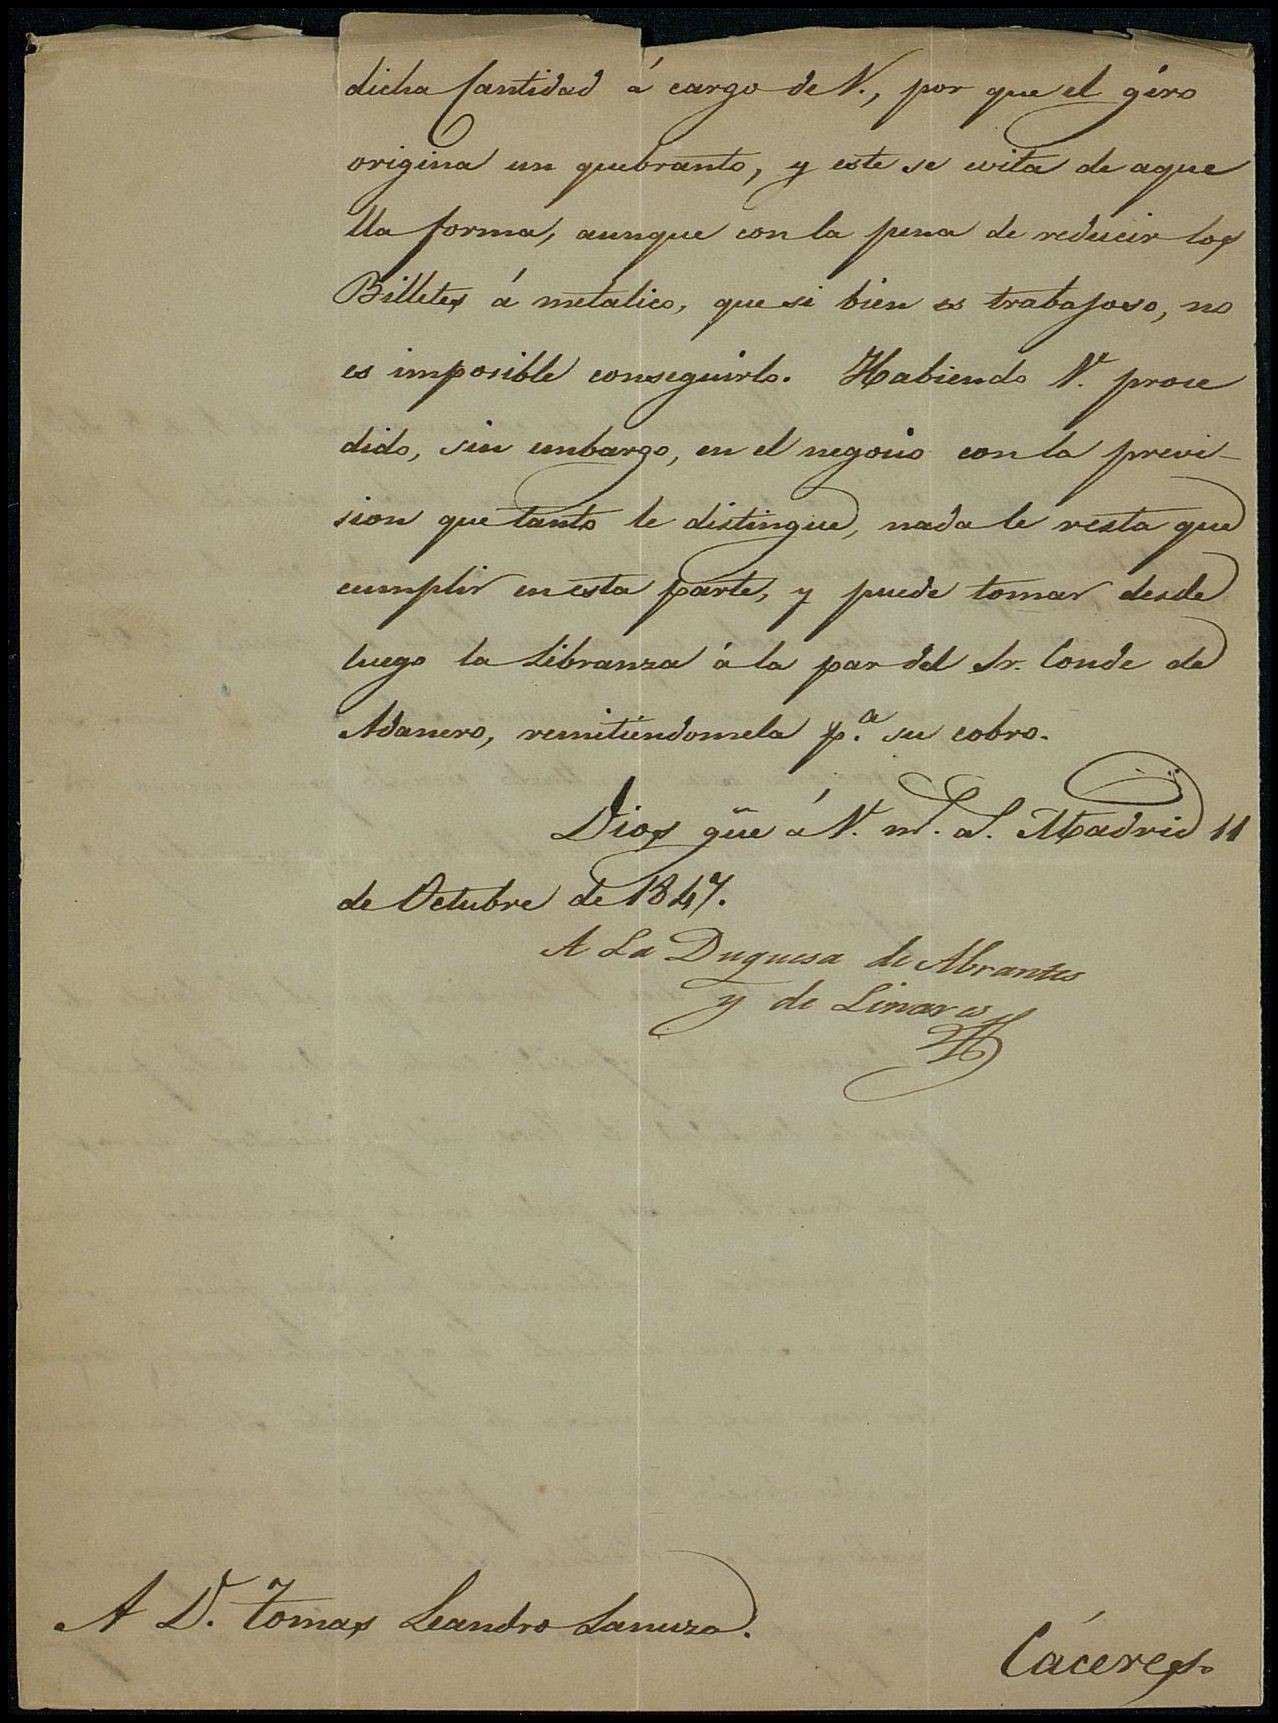 dicha Cantidad á cargo de V., por que el giro
origina un quebranto, y este se evita de aque
lla forma, aunque con la pena de reducir los
Billetes á metalico, que si bien es trabajoso, no
es imposible conseguirlo. Habiendo V. proce
dido, sin embargo, en el negocio con la previ-
sion que tanto le distingue, nada le resta que
cumplir en esta parte, y puede tomar desde
luego la Libranza á la par del Sr. Conde de
Adanero, remitiéndomela p.ª su cobro.
Dios gũe á V. m.s a.s Madrid 11
de Octubre de 1847.
A La Duquesa de Abrantes
y de Linares
A D.n Tomas Leandro Lanuza.
Cáceres.